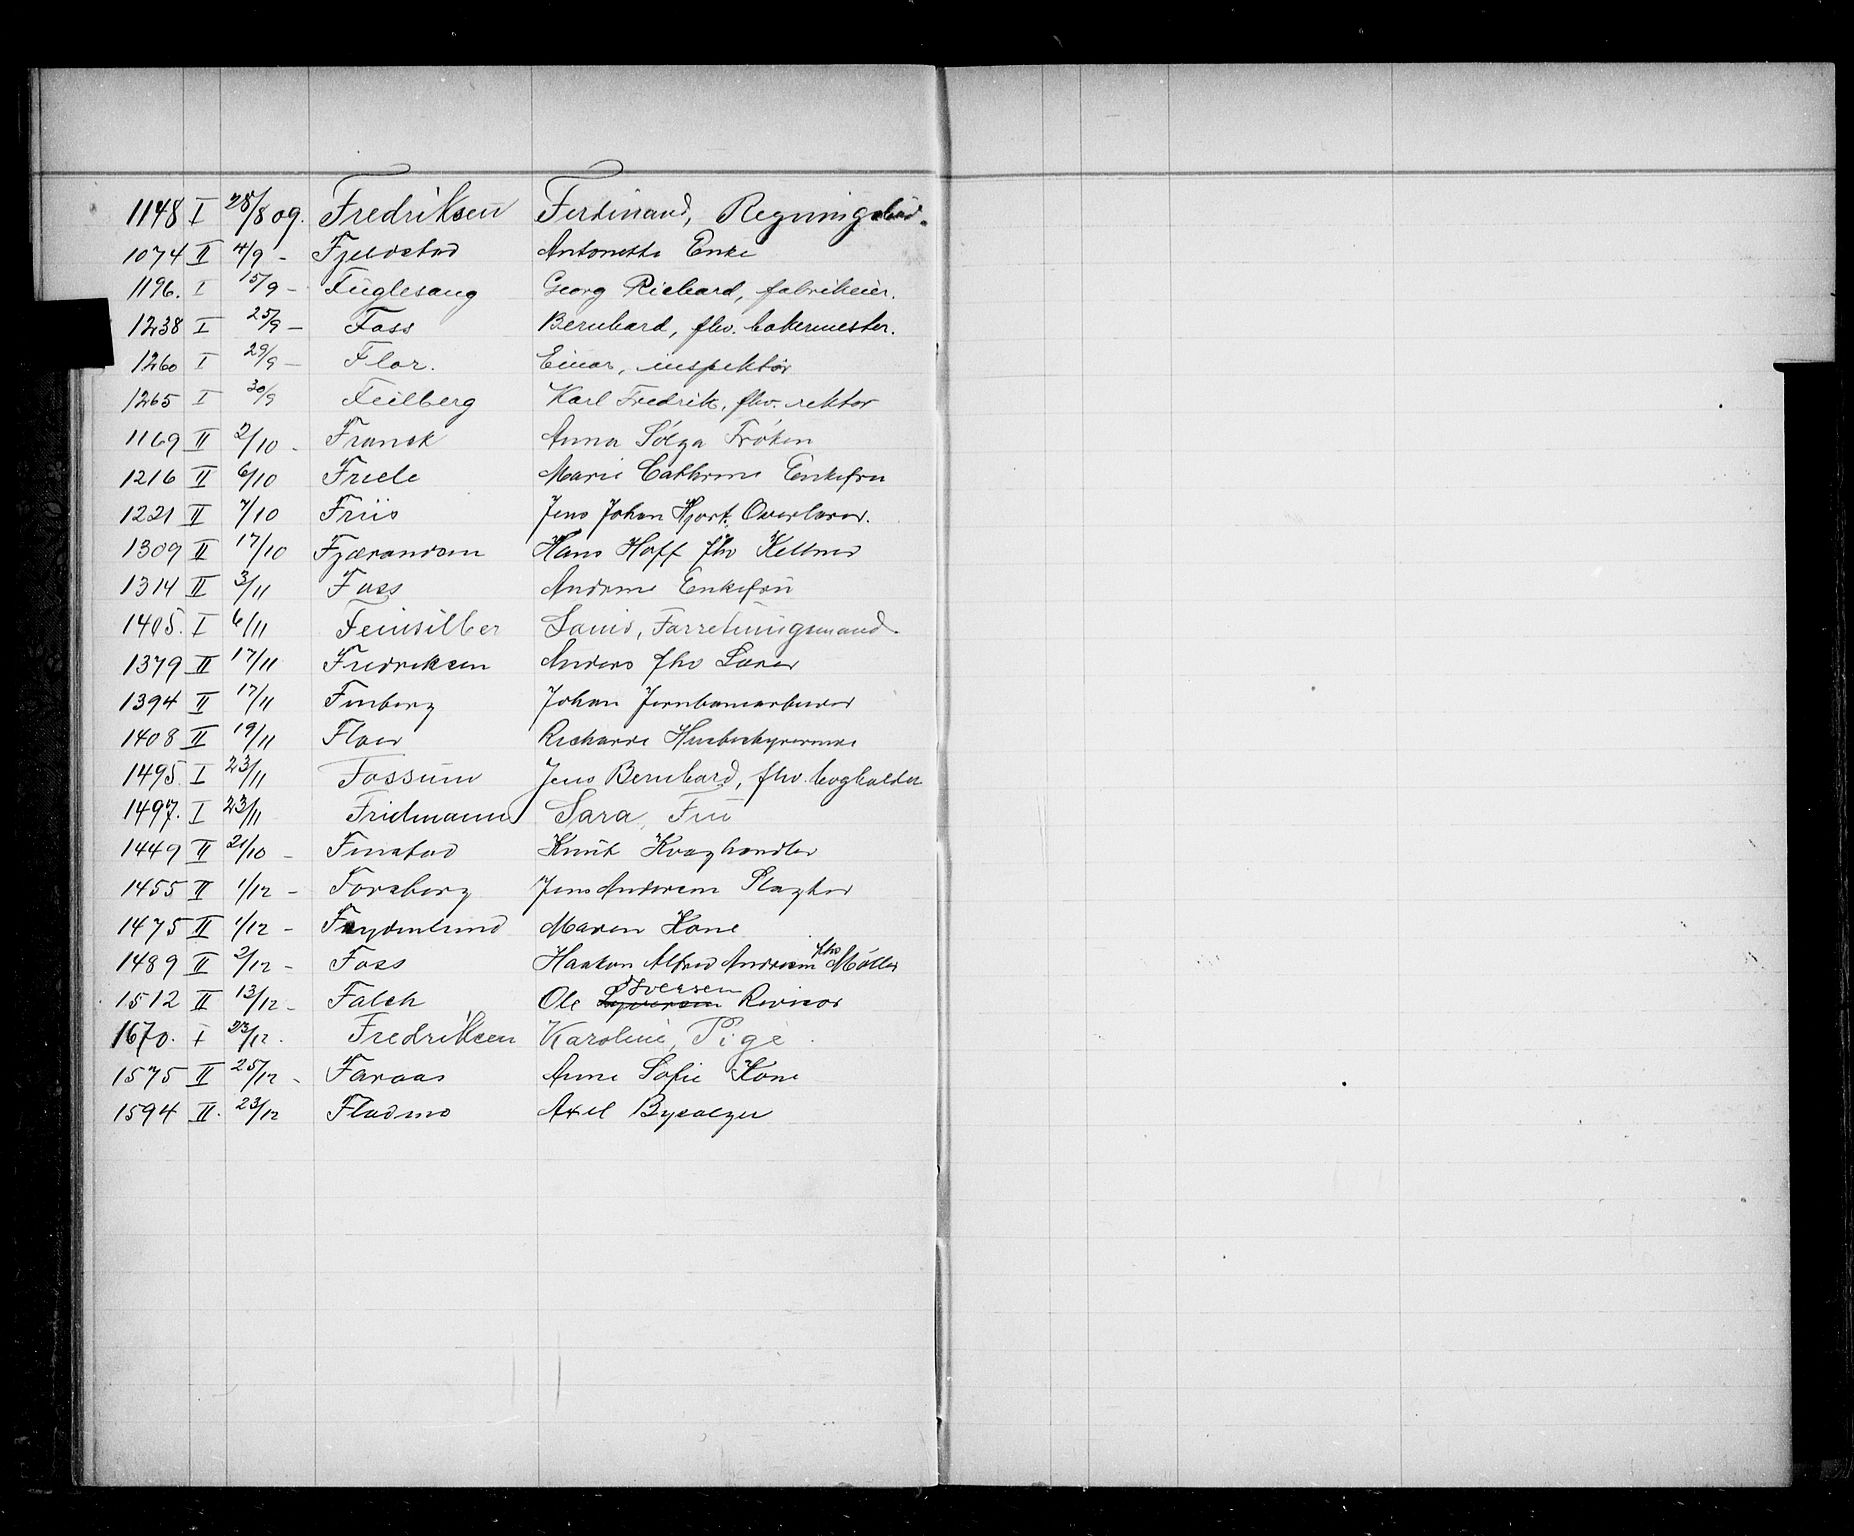 1148 I 28/8 09. Fredriksen Ferdinand, Regningsbud.
1074 II 4/9 - Fjeldstad Antonette Enke
1196. I 15/9 - Fuglesang Georg Richard, fabrikeier.
1238 I 25/9 - Foss Bernhard, fhv. bakermester.
1260 I 29/9 - Flor. Einar, inspektör
1265 I 30/9 Feilberg Karl Fredrik, fhv. rektor
1169 II 2/10 - Franck Anna Frøken
1216 II 6/10 Friele Marie Cathrine Enkefru
1221 II 7/10 Friis Jens Johan Hjort Overlærer.
1309 II 17/10 Hans Hoff fhv Kellner
1314 II 3/11 Foss Andrine Enkefru
1405. I 6/11 Feinsilber Louis, Forretningsmand.
1379 II 17/11 Fredriksen Anders fhv Lærer
1394 II 17/11 Finborg Johan Jernbanearbeider
1408 II 19/11 Floer Rickarde Husbestyrerinde
1495. I 23/11 Fossum Jens Bernhard, fhv. bogholder
1497. I 23/11 Fridmann Sara, Fru
1449 II 21/10 - Finstad Knut Kvæghandler
1455 II 1/12 - Forsberg Jens Andersen Slagter
1475 II 1/12 - Frydenlund Maren Kone
1489 II 2/12 - Foss Haakon Alfred Andresen fhv Møller
1512 II 13/12 - Falch Ole Iversen Revisor
1670. I 23/12. Fredriksen Karoline, Pige.
1575 II 25/12 - Faraas Anne Sofie Kone
1594 II. 23/12 Fladmo Axel Bysælger